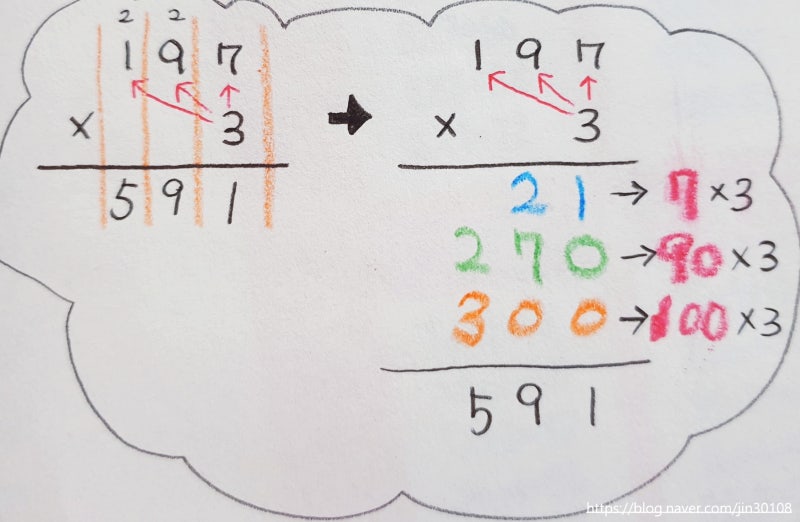 2 2
1 9 7
× 3
5 9 1
➡
1 9 7
× 3
2 1 → 7 × 3
2 7 0 → 90 × 3
3 0 0 → 100 × 3
5 9 1
https://blog.naver.com/jin30108